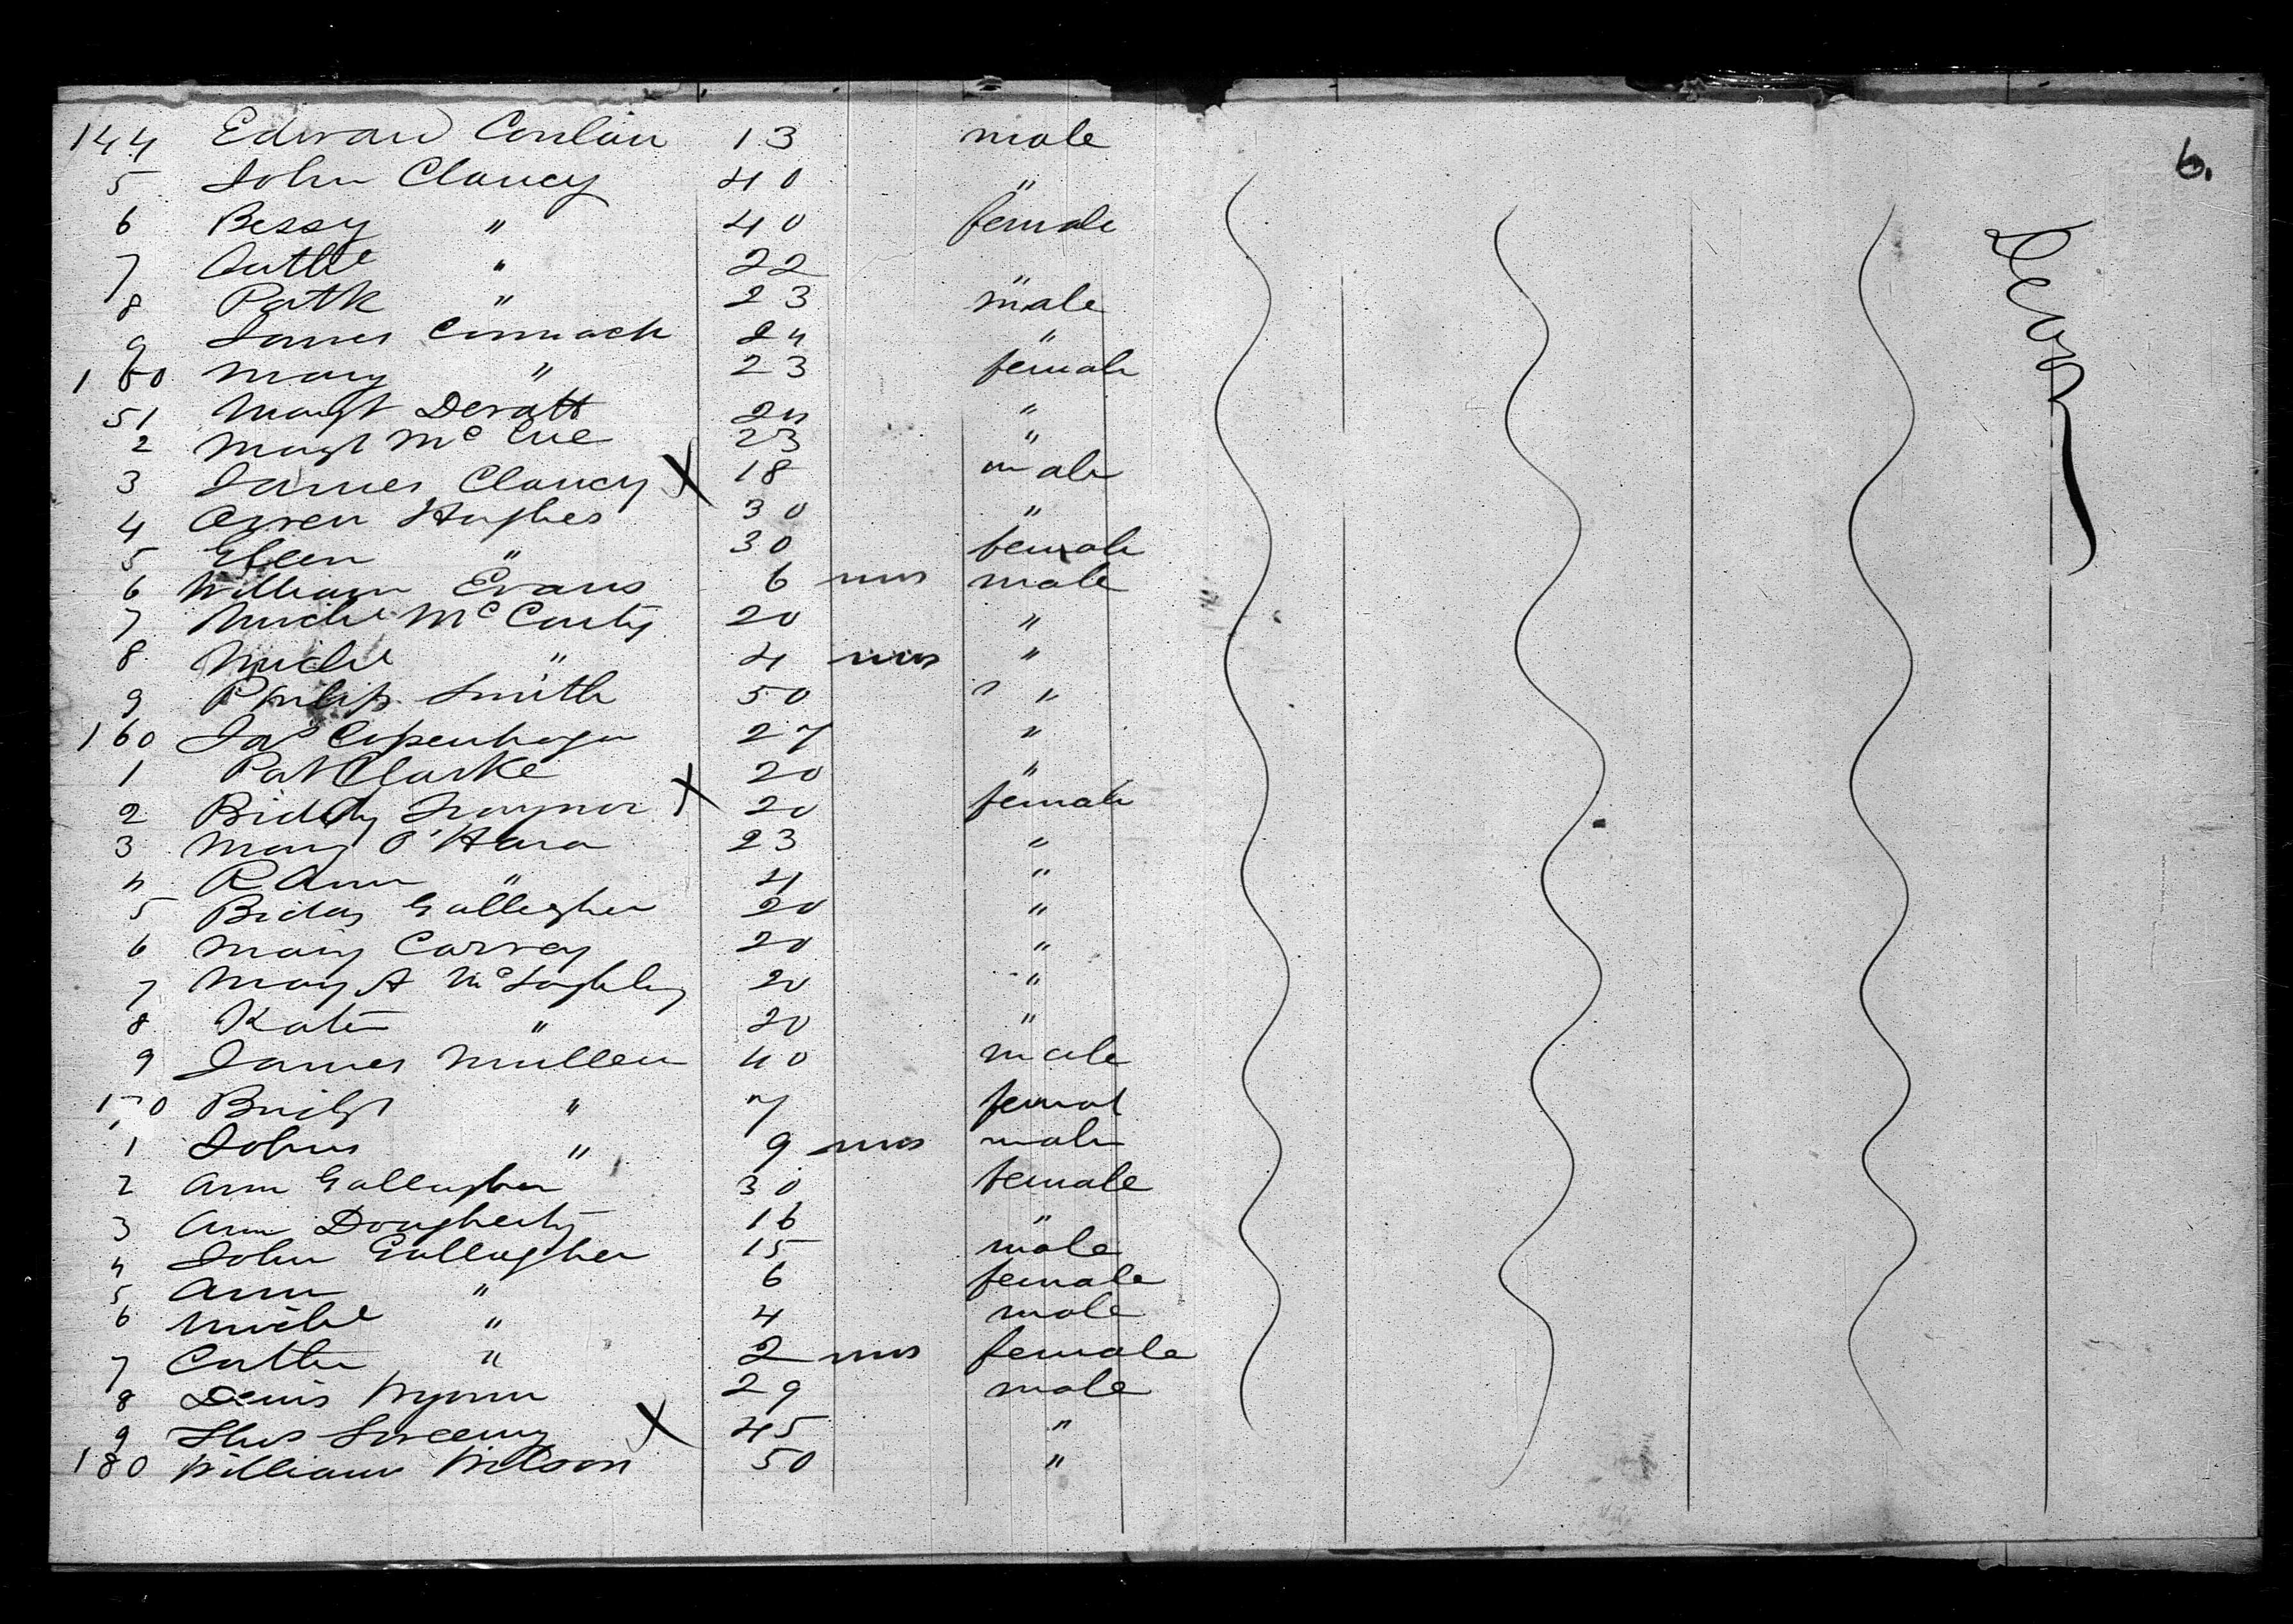 6.
144 Edward Conlan 13 male
5 John Clancy 40 "
6 Bessy " 40 female
7 Cathe " 22 "
8 Patk " 23 male
9 James Cormack 24 "
150 Mary " 23 female
51 Margt Devatt 24 "
2 Margt McCue 23 "
3 James Clancy X 18 male
4 Owen Hughes 30 "
5 Ellen " 30 female
6 William Evans 6 mos male
7 Michl McCarty 20 "
8 Michl " 4 mos "
9 Philip Smith 50 "
160 Jas Copenhagen 27 "
1 Pat Clarke 20 "
2 Biddy Traynor X 20 female
3 Mary O'Hara 23 "
4 R Ann " 4 "
5 Biddy Gallegher 20 "
6 Mary Carvey 20 "
7 Mary A McLoghley 20 "
8 Kate " 20 "
9 James Mullen 40 male
170 Bridgt " 7 femal
1 John " 9 mos male
2 Ann Gallagher 30 female
3 Ann Dougherty 16 "
4 John Gallagher 15 male
5 Ann " 6 female
6 Michl " 4 male
7 Cathe " 2 mos female
8 Denis Wynn 29 male
9 Thos Sweeny X 45 "
180 William Wilson 50 "